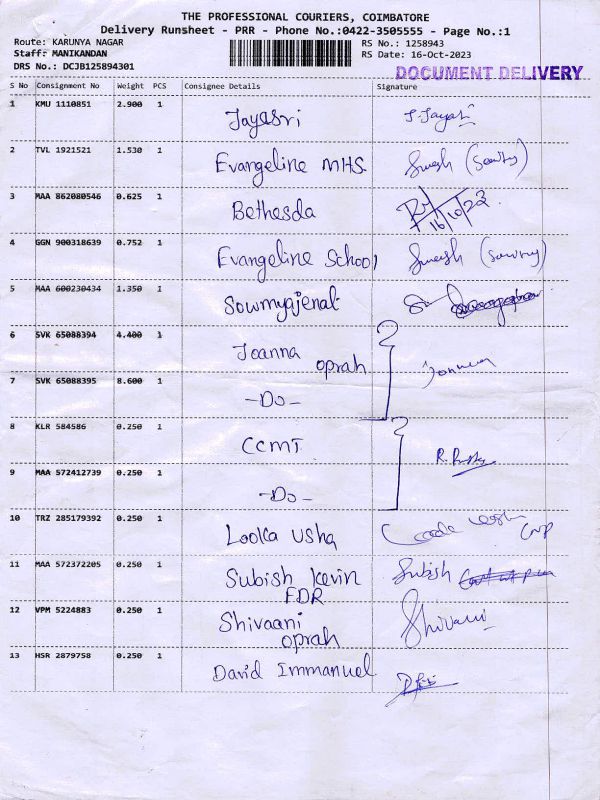 THE PROFESSIONAL COURIERS, COIMBATORE
Delivery Runsheet - PRR - Phone No.:0422-3505555 - Page No.:1
Route: KARUNYA NAGAR RS No.: 1258943
Staff: MANIKANDAN RS Date: 16-Oct-2023
DRS No.: DCJB125894301 DOCUMENT DELIVERY
S No Consignment No Weight PCS Consignee Details Signature
1 KMU 1110851 2.900 1 Jayasri J. Jayasri
2 TVL 1921521 1.530 1 Evangeline MHS.
3 MAA 862080546 0.625 1 Bethesda 16/10/23
4 GGN 900318639 0.752 1 Evangeline School
5 MAA 600230434 1.350 1 Sowmyajenal
6 SVK 65088394 4.400 1 Joanna
oprah
7 SVK 65088395 8.600 1 -Do-
8 KLR 584586 0.250 1 CCMT
9 MAA 572412739 0.250 1 -Do-
10 TRZ 285179392 0.250 1 Looka Usha
11 MAA 572372205 0.250 1 Subish Kevin Subish
FDR
12 VPM 5224883 0.250 1 Shivaani Shivani
oprah
13 HSR 2879758 0.250 1 David Immanuel